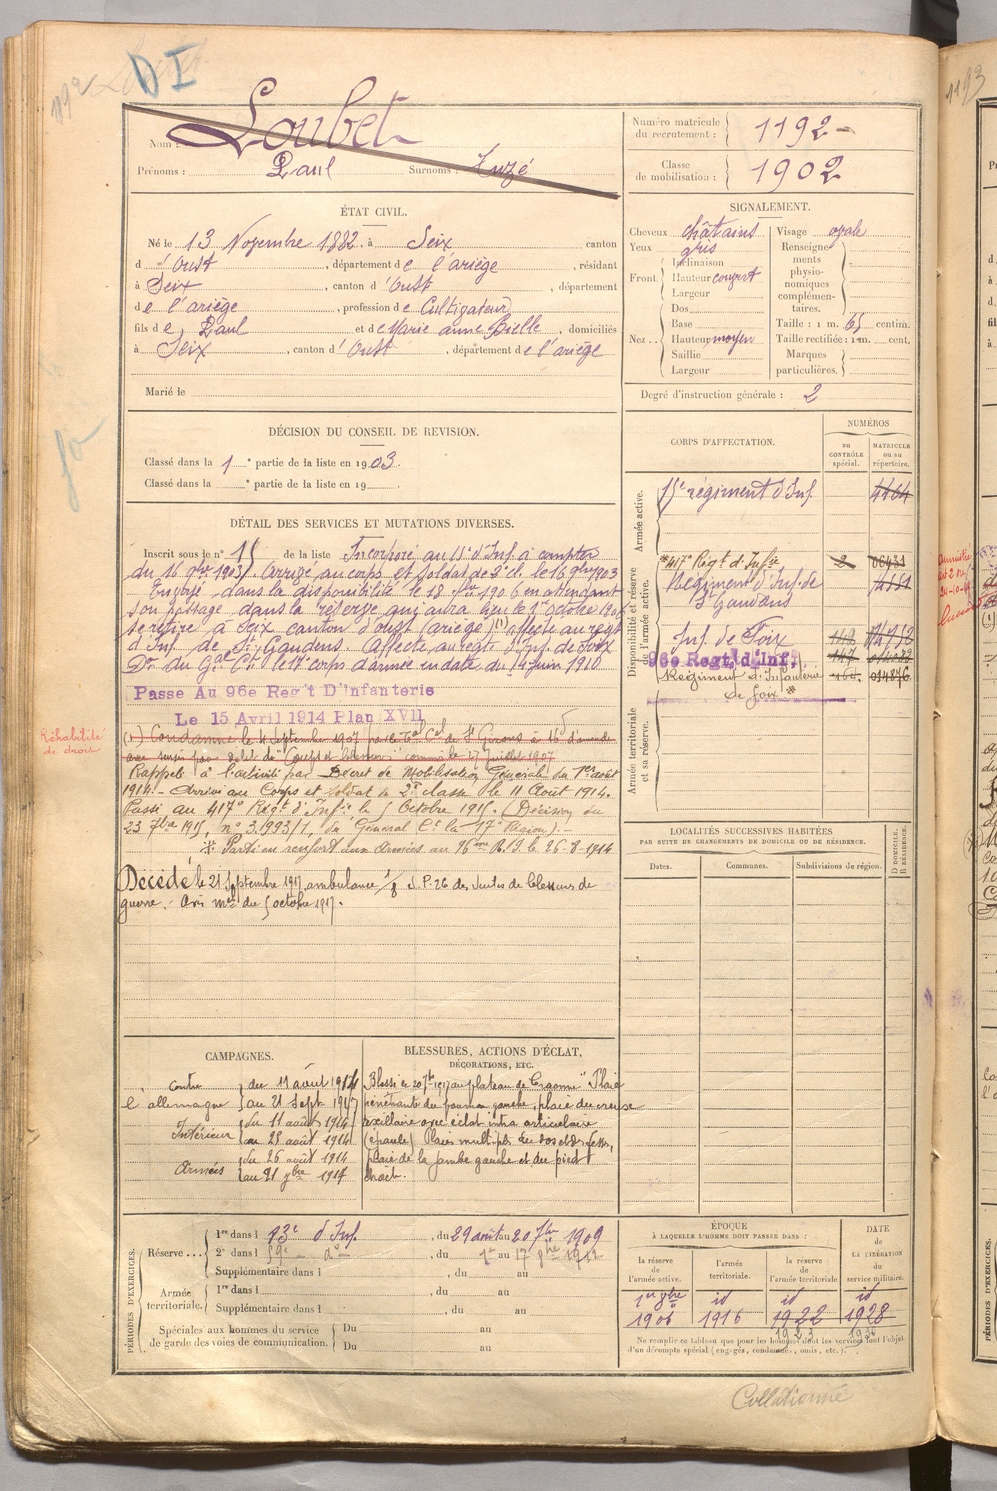 D I
Nom : Loubet
Prénoms : Paul Surnoms : Tuzé
Numéro matricule du recrutement : 1192
Classe de mobilisation : 1902
ÉTAT CIVIL.
Né le 13 Novembre 1882, à Seix canton
d'Oust, département de l'ariège, résidant
à Seix, canton d'Oust, département
de l'ariège, profession de Cultivateur
fils de Paul et de Marie anne Bielle, domiciliés
à Seix, canton d'Oust, département de l'ariège
Marié le
SIGNALEMENT.
Cheveux châtains Visage ovale
Yeux gris Renseignements physionomiques complémentaires.
Front. Inclinaison
Hauteur couvert
Largeur
Nez.. Dos
Base
Hauteur moyen
Saillie
Largeur
Taille : 1 m. 65 centim.
Taille rectifiée : 1 m. cent.
Marques particulières.
Degré d'instruction générale : 2
DÉCISION DU CONSEIL DE REVISION.
Classé dans la 1e partie de la liste en 1903.
Classé dans la e partie de la liste en 19
DÉTAIL DES SERVICES ET MUTATIONS DIVERSES.
Inscrit sous le n° 15 de la liste Incorporé au 15e d'Inf. à compter
du 16 9bre 1903. Arrivé au corps et soldat de 2e cl. le 16 9bre 1903
Envoyé dans la disponibilité le 18 1906 en attendant
son passage dans la réserve qui aura lieu le 1er octobre 1906
se retire à Seix canton d'oust (ariège) (1) affecté au régt
d'Inf. de St Gaudens. Affecté au régt d'Inf. de Foix
Don du Gal Ct le 17e corps d'armée en date du 14 juin 1910
Passe Au 96e Reg't D'Infanterie
Le 15 Avril 1914 Plan XVII
(1) Condamné le 4 Septembre 1907 par le Tal Cel de St Girons à 16f d'amende
avec sursis pour délit de "Coups et blessures" commis le 27 Juillet 1907
Réhabilité
de droit
Rappelé à l'activité par Décret de Mobilisation Générale du 1er août
1914. - Arrivé au Corps et soldat de 2e classe le 11 Août 1914.
Passé au 417e Régt d'Infie le 5 Octobre 1915. (Décision du
23 7bre 1915, n° 3.993/1, du Général Ct la 17e Région). -
※ Parti en renfort aux Armées au 96ème R.I. le 26-8-1914
Décédé le 21 Septembre 1917 ambulance 1/8 S.P. 26 des suites de blessures de
guerre. Avis mel du 5 octobre 1917.
CORPS D'AFFECTATION.
NUMÉROS
au CONTRÔLE spécial.
MATRICULE ou au répertoire.
Armée active.
15e régiment d'Inf. 4464
Disponibilité et réserve de l'armée active.
417e Régt d'Infie 2
Régiment d'Inf. de
St Gaudens
Inf. de Foix
96e Regt d'Inf.
Régiment d'Infanterie
de Foix ※
Armée territoriale et sa réserve.
LOCALITÉS SUCCESSIVES HABITÉES
PAR SUITE DE CHANGEMENTS DE DOMICILE OU DE RÉSIDENCE.
Dates. Communes. Subdivisions de région. D DOMICILE. R RÉSIDENCE.
CAMPAGNES.
contre l'allemagne du 11 août 1914
au 21 Sept 1917
Intérieur du 11 août 1914
au 25 août 1914
Armées du 26 août 1914
au 21 9bre 1917
BLESSURES, ACTIONS D'ÉCLAT,
DÉCORATIONS, ETC.
Blessé le 20 7bre 1917 au plateau de Craonne "Plaie
pénétrante du poumon gauche, plaie du creux
axillaire avec éclat intra articulaire
(épaule) Plaies multiples du dos et des fesses,
plaie de la jambe gauche et du pied
droit.
PÉRIODES D'EXERCICES.
Réserve... 1re dans l 73e d'Inf. , du 29 août au 20 7bre 1909
2e dans l 59e do , du 1er au 17 8bre 1912
Supplémentaire dans l , du au
Armée territoriale. 1re dans l , du au
Supplémentaire dans l , du au
Spéciales aux hommes du service de garde des voies de communication. Du au
Du au
ÉPOQUE
À LAQUELLE L'HOMME DOIT PASSER DANS :
la réserve de l'armée active.
l'armée territoriale.
la réserve de l'armée territoriale
DATE DE LA LIBÉRATION du service militaire.
1er 8bre id id id
1906 1916 1922 1928
Ne remplir ce tableau que pour les hommes dont les services font l'objet
d'un décompte spécial (engagés, condamnés, omis, etc.).
Collationné
1193